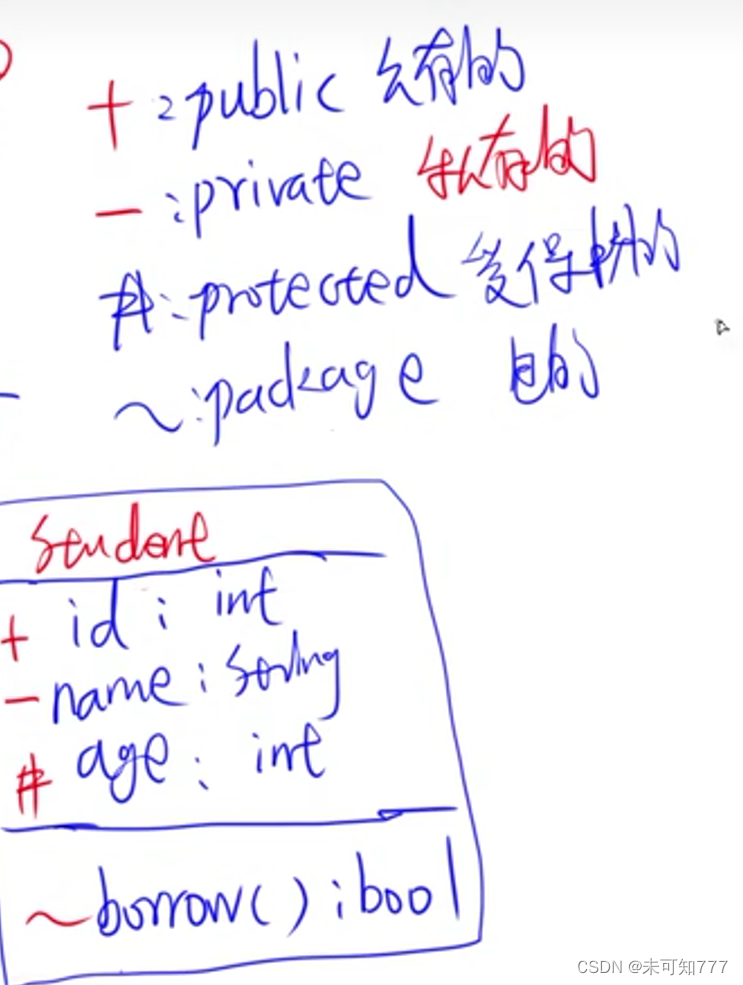 + :public 公有的
- :private 私有的
#:protected 受保护的
~:package 包的
Student
+ id : int
- name : String
# age : int
~borrow( ) : bool
CSDN @未可知777